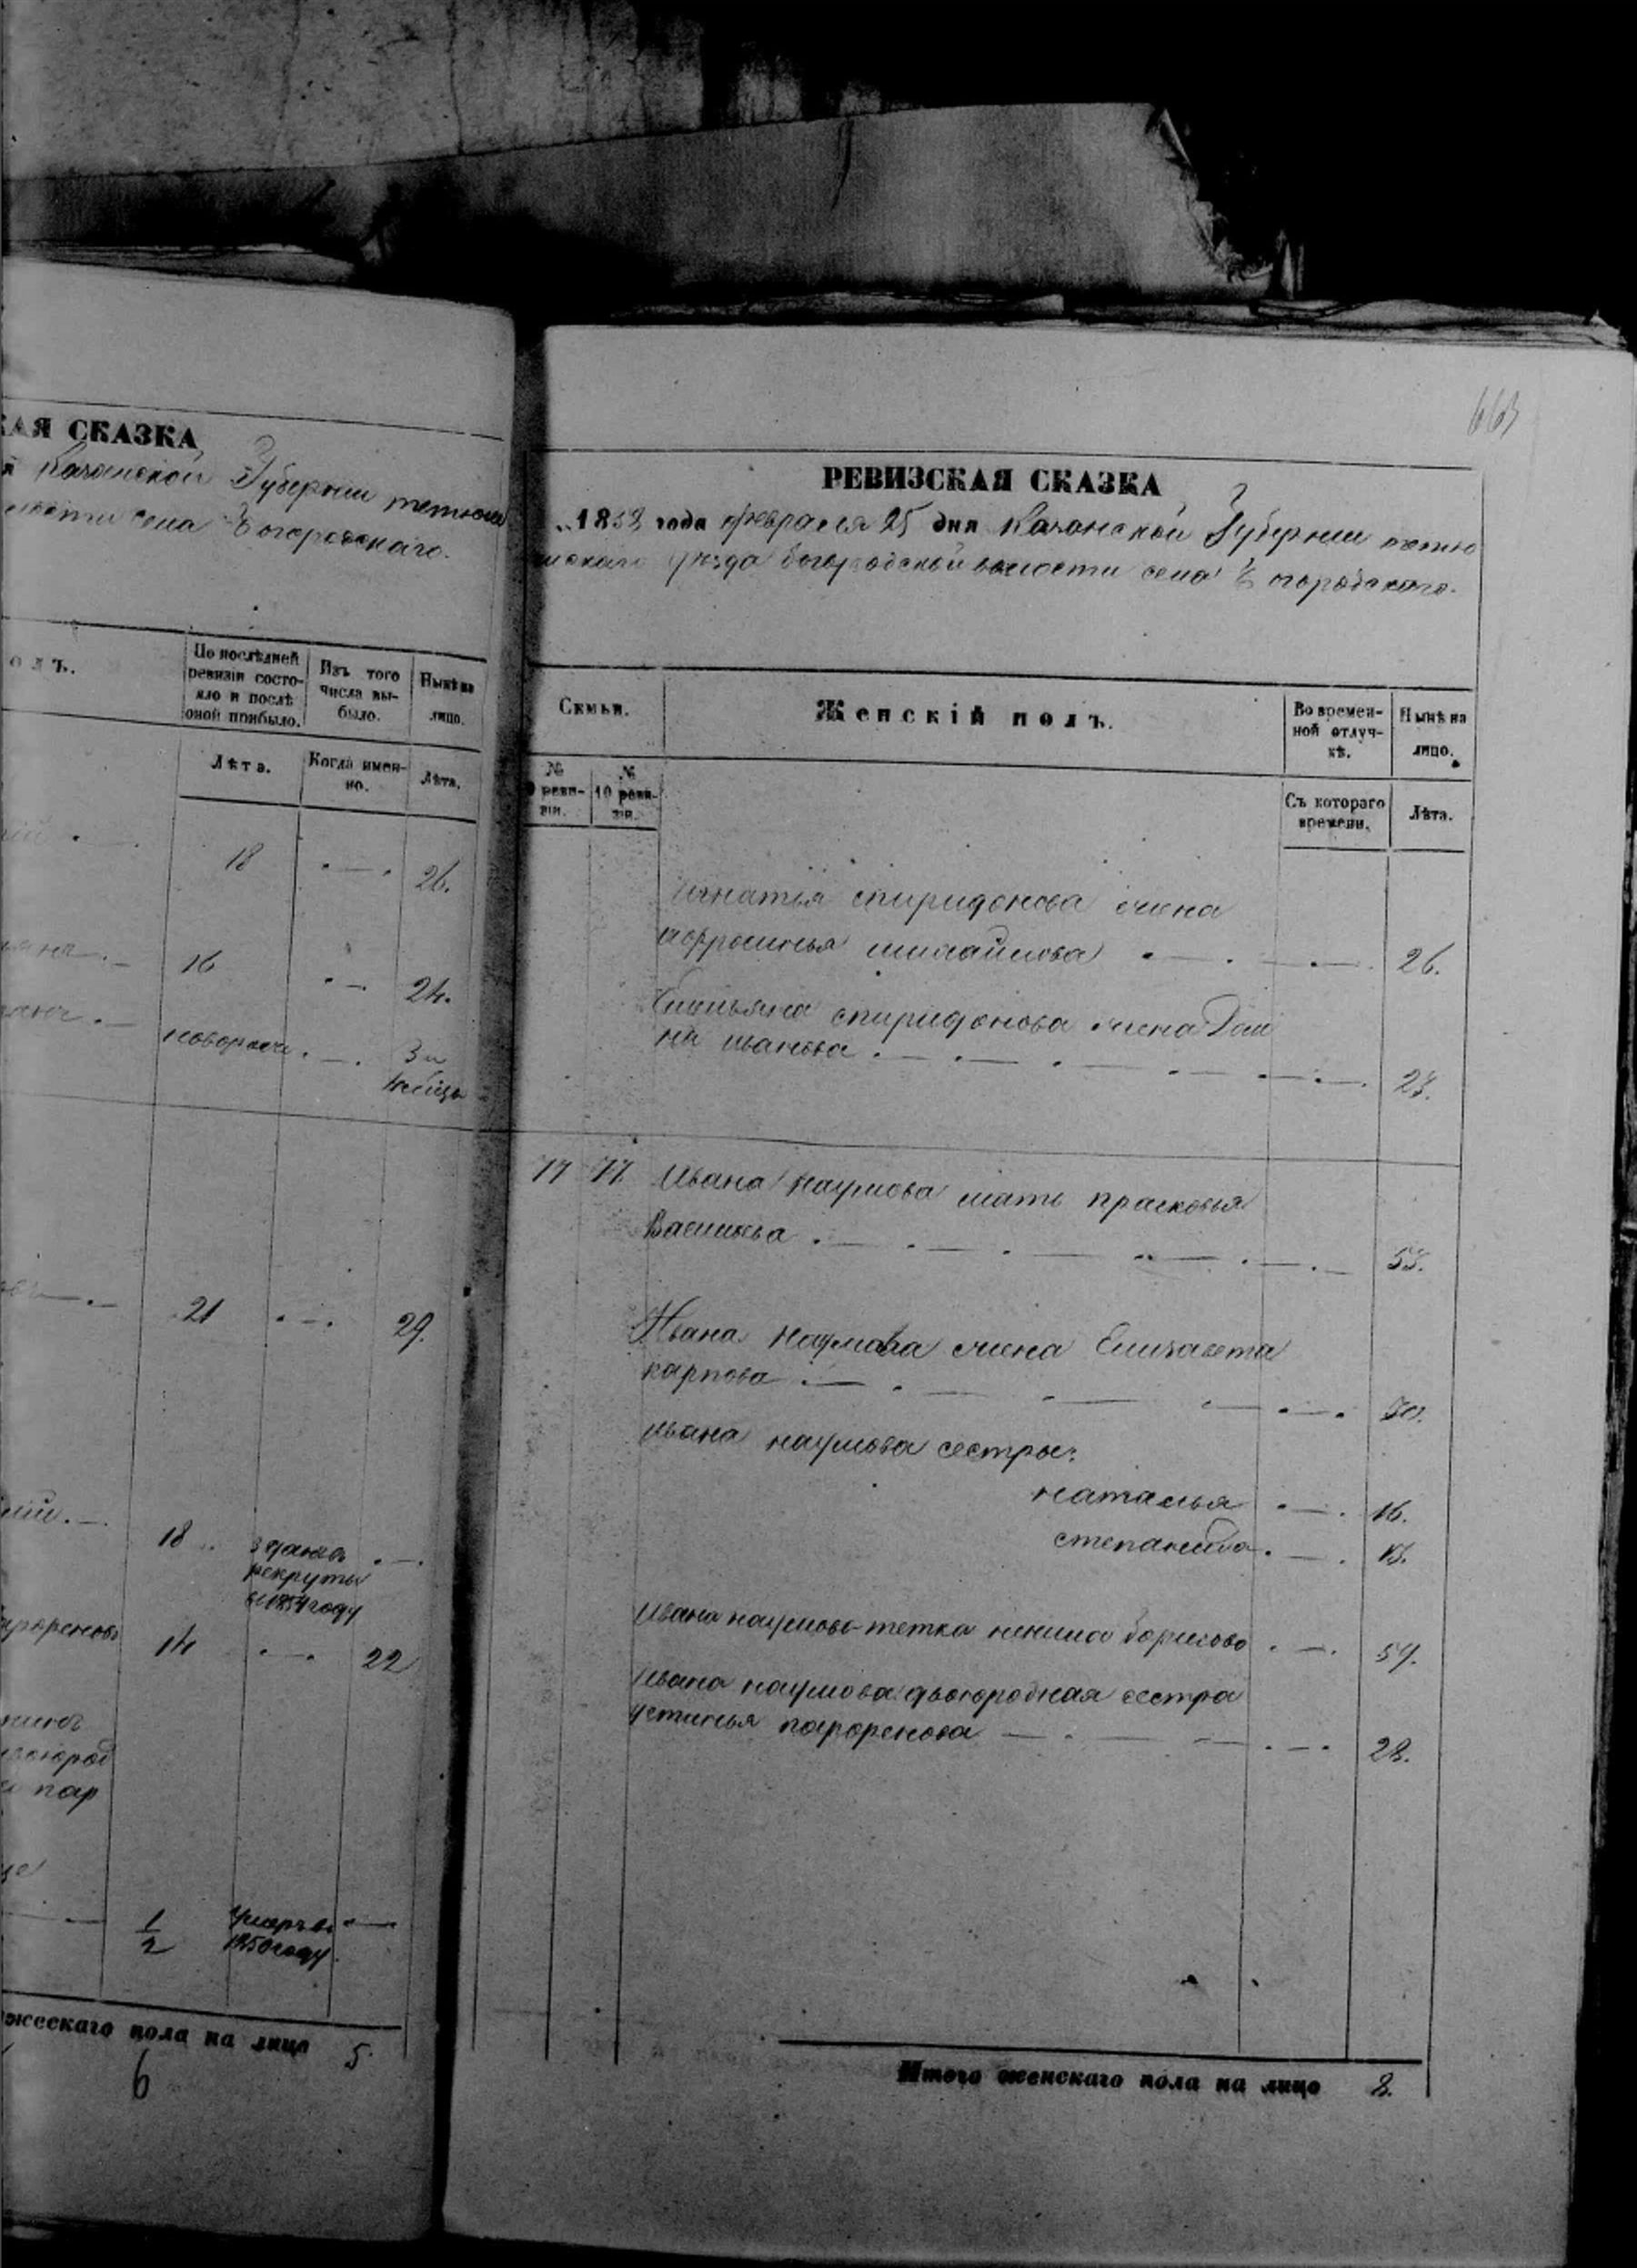 КАЯ СКАЗКА
Казанской Губернии тетюш
села Богородскаго.
олъ.
По послѣдней ревизіи состояло и послѣ оной прибыло.
Изъ того числа выбыло.
Нынѣ на лицо.
Лѣта.
Когда именно.
Лѣта.
18 26.
16 24.
новорожд 3 и
21 29.
18 зданъ въ
рекруты
въ 1854 году
14 22
пар
1/2 умеръ въ
1850 году
жескаго пола на лицо 5.
6
663
РЕВИЗСКАЯ СКАЗКА
1858 года февраля 25 дня Казанской Губернии тетю
шскаго уѣзда богородской волости села Богородскаго.
Семьи.
Женскій полъ.
Во временной отлучкѣ.
Нынѣ на лицо.
№ 9 ревизіи.
№ 10 ревизіи.
Съ котораго времени.
Лѣта.
Игнатья спиридонова жена
афросинья михайлова 26.
Емельяна спиридонова жена Дом
на иванова 23.
77 77. Ивана наумова мать прасковья
Васильева 53.
Ивана Наумова жена Елизавета
карпова 30.
ивана наумова сестры:
наталья 16.
степанида 13.
ивана наумова тетка борисова 57.
ивана наумова двоюродная сестра
устинья парфенова 28.
Итого женскаго пола на лицо 8.